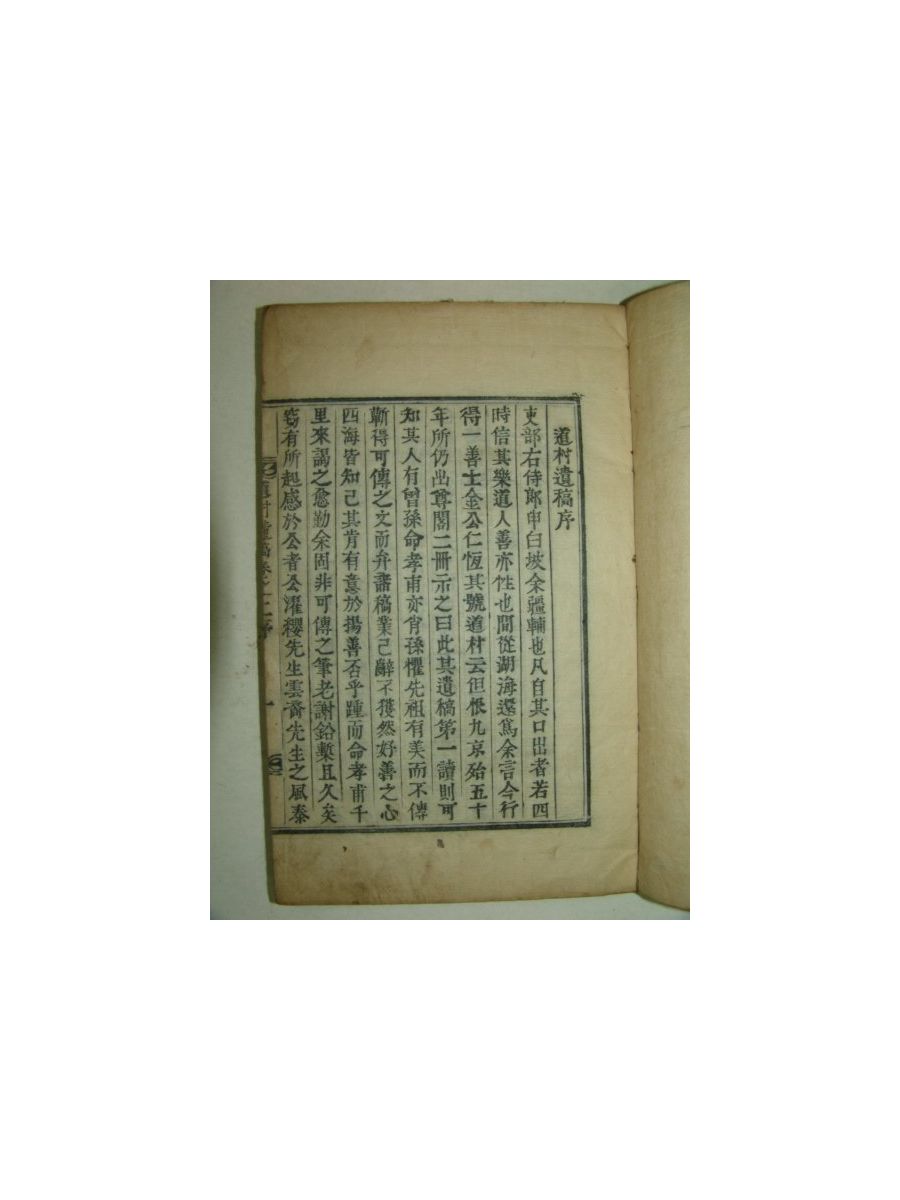 道村遺稿序
吏部右侍郞申白坡余疆輔也凡自其口出者若四
時信其樂道人善亦性也間從湖海還爲余言今行
得一善士金公仁恆其號道村云但恨九京殆五十
年所仍出尊閣二冊示之曰此其遺稿第一讀則可
知其人有曾孫命孝甫亦肖孫懼先祖有美而不傳
蘄得可傳之文而弁諸稿業已辭不獲然好善之心
四海皆知己其肯有意於揚善否乎踵而命孝甫千
里來謁之愈勤余固非可傳之筆老謝鉛槧且久矣
竊有所起感於公者公濯纓先生雲裔先生之風泰
道村遺稿卷之一 序 一